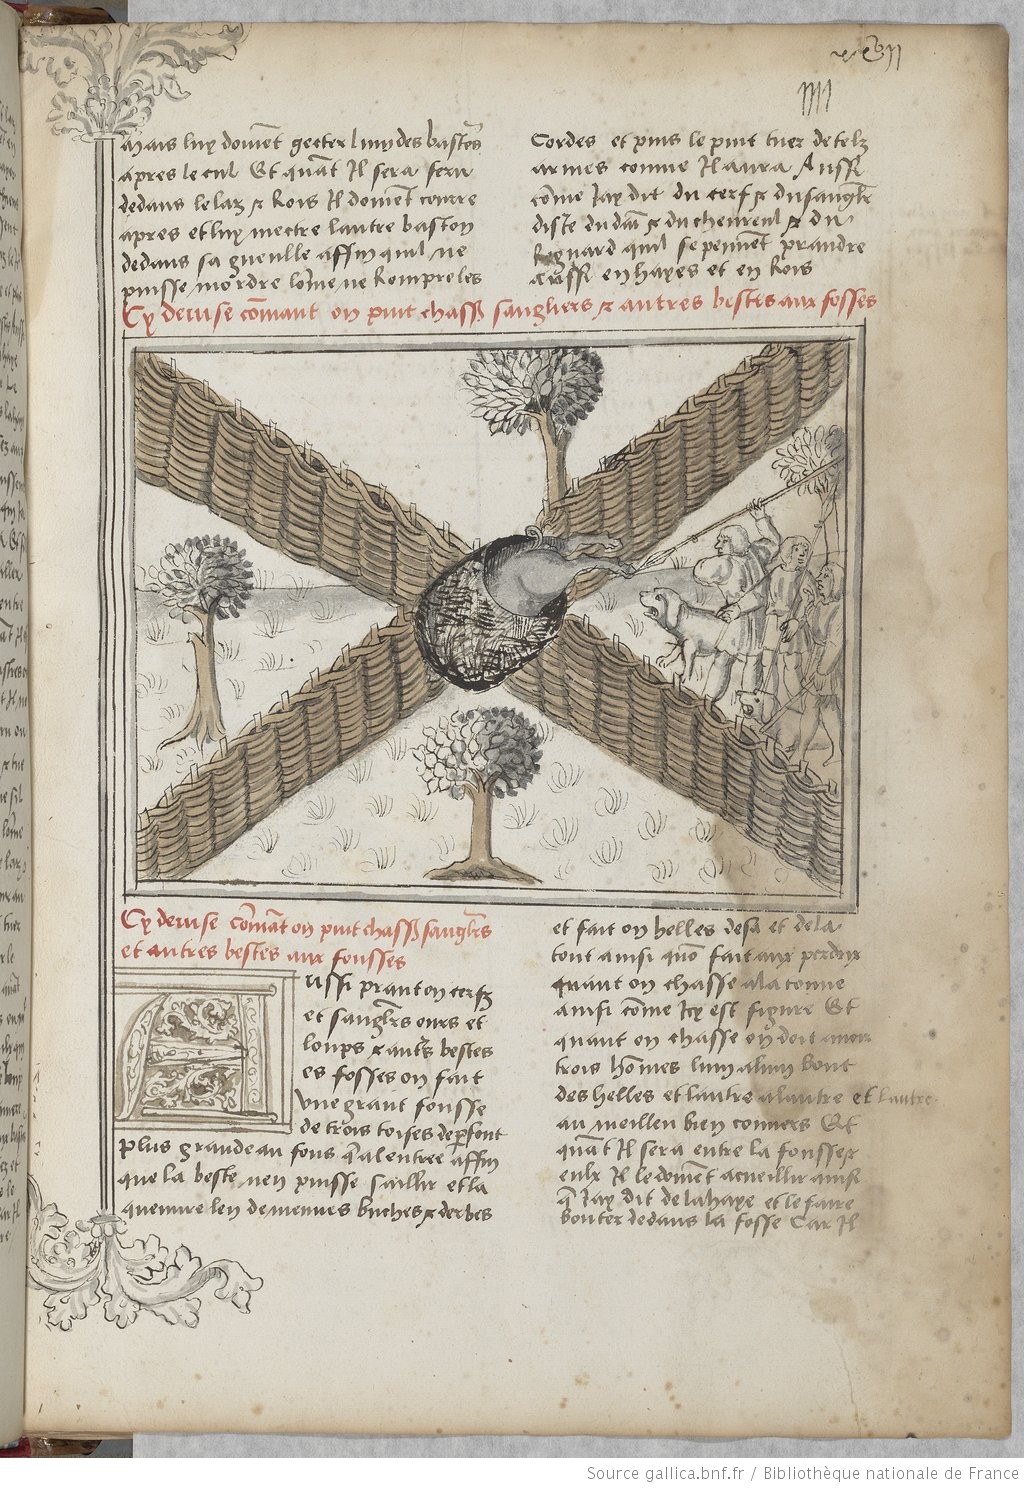 mais luy doivent gecter lun des bastos
apres le cul Et quāt Jl sera feru
dedans le laz & Rois Jl doivēt courre
apres et luy mectre lautre baston
dedans sa gueulle affin quil ne
puisse mordre lōme ne Rompre les
Cordes et puis le puit tuer de telz
armes comme Jl aura Aussi
cōme Jay dit du cerf & du sanglr
diste du daī & du cheureul & du
Regnard quil se peuuēt prandre
aussi en hayes et en Rois
Cy deuise cōmant on puit chass sangliers & autres bestes aux fosses
Cy deuise cōmāt on puit chass sanglrs
et autres bestes aux fousses
Aussi prant on cerfz
et sanglrs ours et
loups & autrs bestes
es fosses on fait
vne grant fousse
de trois toises de perfont
plus grande au fons q̄ a lentree affin
que la beste nen puisse saillir et la
queuure len de menues buches & derbes
et fait on helles desa et dela
tout ainsi quō fait aux perdrix
quant on chasse a la tonne
ainsi cōme Icy est figure Et
quant on chasse on doit avoir
trois hōmes lun a lun bout
des helles et lautre a lautre et lautre
au meillen bien couuers Et
quāt Jl sera entre la fousse &
eulx Jl le doiuēt acueillir ainsi
q̄ Jay dit de la haye et le faire
bouter dedans la fosse Car Jl
Source gallica.bnf.fr / Bibliothèque nationale de France